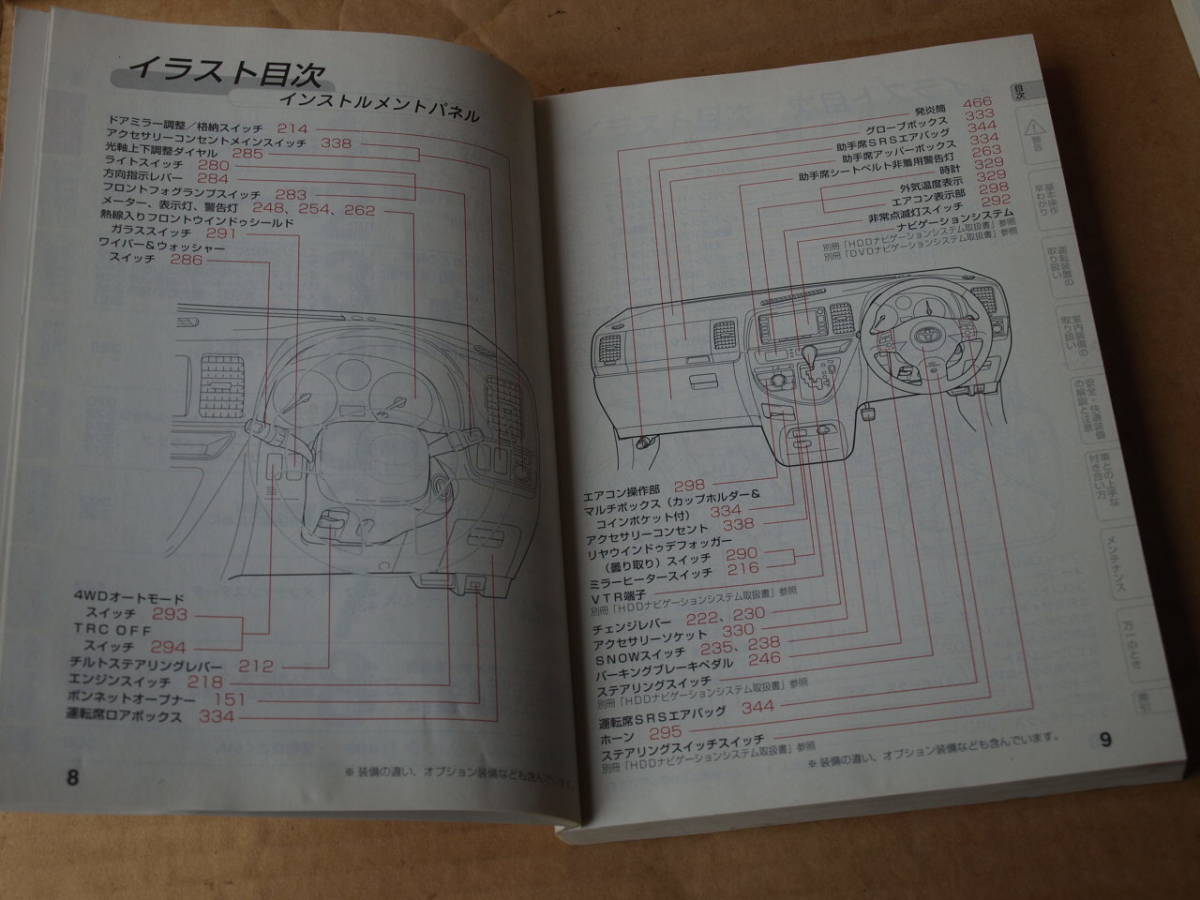 イラスト目次
インストルメントパネル
ドアミラー調整／格納スイッチ 214
アクセサリーコンセントメインスイッチ 338
光軸上下調整ダイヤル 285
ライトスイッチ 280
方向指示レバー 284
フロントフォグランプスイッチ 283
メーター、表示灯、警告灯 248、254、262
熱線入りフロントウインドゥシールド
ガラススイッチ 291
ワイパー＆ウォッシャー
スイッチ 286
4WDオートモード
スイッチ 293
TRC OFF
スイッチ 294
チルトステアリングレバー 212
エンジンスイッチ 218
ボンネットオープナー 151
運転席ロアボックス 334
※ 装備の違い、オプション装備なども含んでいます。
8
発炎筒 466
グローブボックス 333
助手席SRSエアバッグ 344
助手席アッパーボックス 334
助手席シートベルト非着用警告灯 263
時計 329
外気温度表示 329
エアコン表示部 298
非常点滅灯スイッチ 292
ナビゲーションシステム
別冊「HDDナビゲーションシステム取扱書」参照
別冊「DVDナビゲーションシステム取扱書」参照
エアコン操作部 298
マルチボックス（カップホルダー＆
コインポケット付） 334
アクセサリーコンセント 338
リヤウインドゥデフォッガー
（曇り取り）スイッチ 290
ミラーヒータースイッチ 216
VTR端子
別冊「HDDナビゲーションシステム取扱書」参照
チェンジレバー 222、230
アクセサリーソケット 330
SNOWスイッチ 235、238
パーキングブレーキペダル 246
ステアリングスイッチ
別冊「HDDナビゲーションシステム取扱書」参照
運転席SRSエアバッグ 344
ホーン 295
ステアリングスイッチスイッチ
別冊「HDDナビゲーションシステム取扱書」参照
※ 装備の違い、オプション装備なども含んでいます。
9
目次
メンテナンス
万一のとき